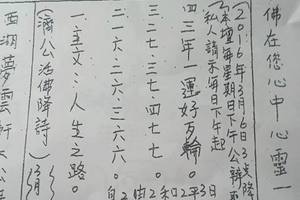 佛在您心中心靈一
2016年3月6日3戈降
(本壇每星期日下午公辦聖
私人請示每日下午起
四三年一運好歹輪。
三二七.三七.四七.七。
二一六.二六.三六.六。
一.主文:人生之路。
(濟公活佛降詩)
西湖夢雲軒
自2由2和2平3日